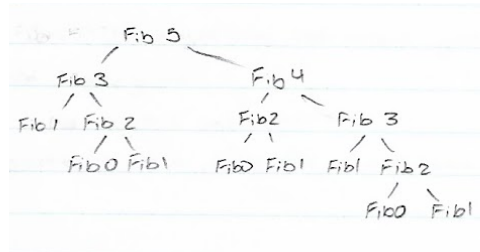 Fib 5
Fib 3 Fib 4
Fib 1 Fib 2 Fib2 Fib 3
Fib0 Fib1 Fib0 Fib1 Fib1 Fib2
Fib0 Fib1